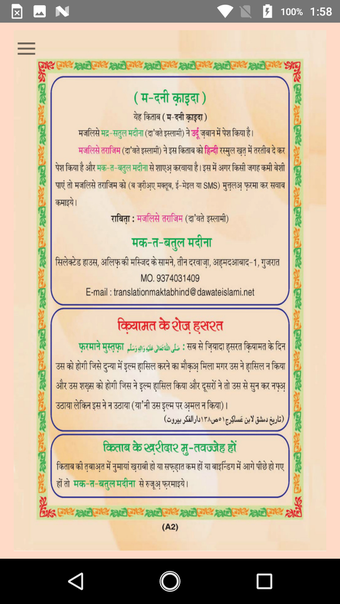 100% 1:58
( म-दनी क़ाइदा )
येह किताब ( म-दनी क़ाइदा )
मजलिसे मद्र-सतुल मदीना (दा'वते इस्लामी) ने उर्दू ज़बान में पेश किया है।
मजलिसे तराजिम (दा'वते इस्लामी) ने इस किताब को हिन्दी रस्मुल ख़त़ में तरतीब दे कर
पेश किया है और मक-त-बतुल मदीना से शाएअ़ करवाया है। इस में अगर किसी जगह कमी बेशी
पाएं तो मजलिसे तराजिम को (ब ज़रीअ़ए मक्तूब, ई-मेइल या SMS) मुत़्त़लअ़ फ़रमा कर सवाब
कमाइये।
राबित़ा : मजलिसे तराजिम (दा'वते इस्लामी)
मक-त-बतुल मदीना
सिलेक्टेड हाउस, अलिफ़ की मस्जिद के सामने, तीन दरवाज़ा, अहमदआबाद-1, गुजरात
MO. 9374031409
E-mail : translationmaktabhind@dawateislami.net
क़ियामत के रोज़ ह़सरत
फ़रमाने मुस्त़फ़ा صَلَّى اللهُ تَعَالٰى عَلَيْهِ وَاٰلِهٖ وَسَلَّم : सब से ज़ियादा ह़सरत क़ियामत के दिन
उस को होगी जिसे दुन्या में इल्म ह़ासिल करने का मौक़अ़ मिला मगर उस ने ह़ासिल न किया
और उस शख़्स को होगी जिस ने इल्म ह़ासिल किया और दूसरों ने तो उस से सुन कर नफ़्अ़
उठाया लेकिन इस ने न उठाया (या'नी उस इल्म पर अ़मल न किया)।
(تاريخ دمشق لابن عساكر ج٥١ ص١٣٨ دارالفكر بيروت)
किताब के ख़रीदार मु-तवज्जेह हों
किताब की त़बाअ़त में नुमायां ख़राबी हो या सफ़ह़ात कम हों या बाइन्डिंग में आगे पीछे हो गए
हों तो मक-त-बतुल मदीना से रुजूअ़ फ़रमाइये।
(A2)